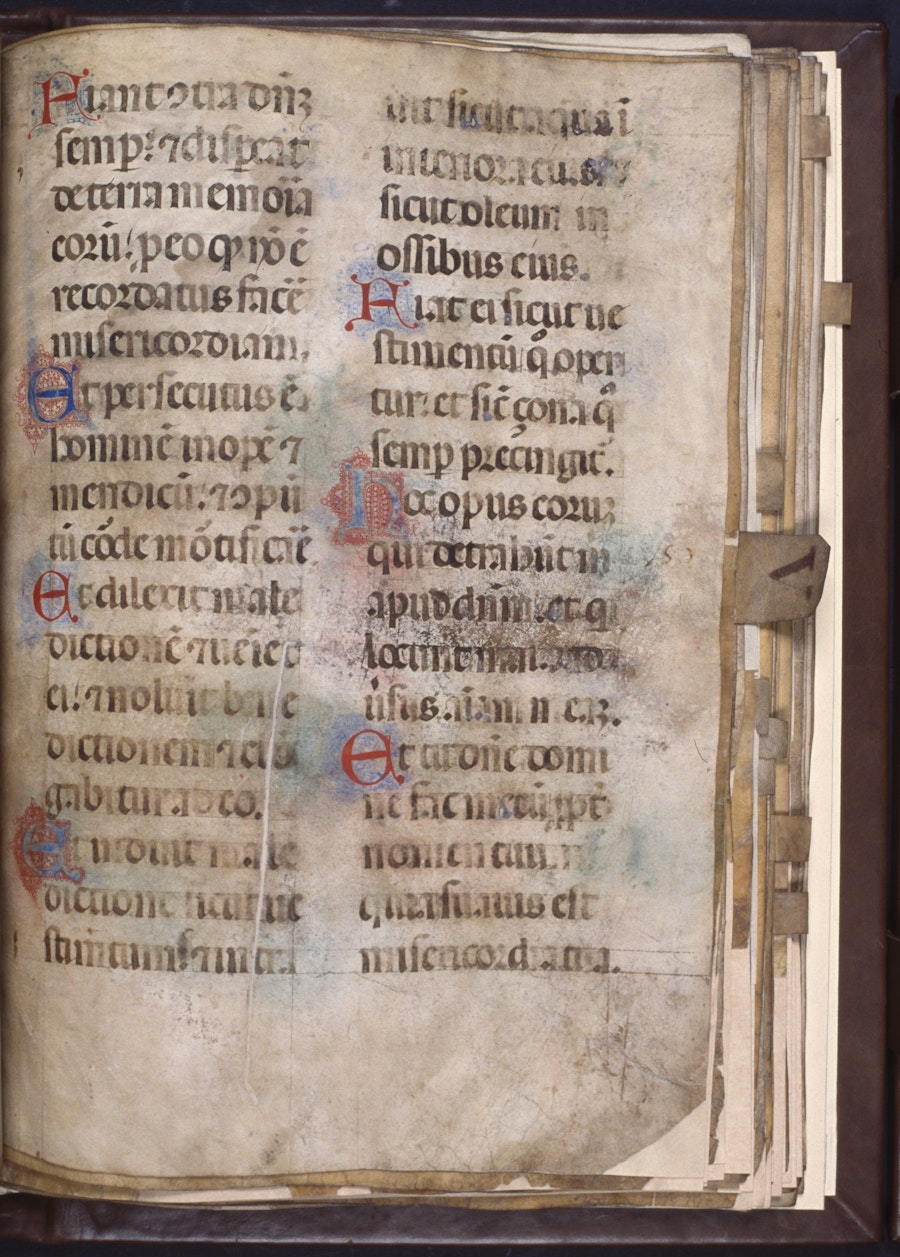 Fiant ɔtra dn̄ꝫ
semp̱: ⁊ dispereat
de terra memoīa
corū: p̱ eo qp̱ nō ē
recordatus facē
misericordiam.
Et persecutus ē
hominē inopē ⁊
mendicū: ⁊ ɔpū
tū cōde mōtificāē
Et dilexit male
dictionē ⁊ ueīet
ei: ⁊ noluit bene
dictionem ⁊ elō
gabitur ab eo.
Et induit male
dictionē sicut ue
stim̄tum: ⁊ intra
uit sicut aqua ī
interiora eius:
sicut oleum in
ossibus eius.
Fiat ei sicut ue
stimentū q̊ operi
tur: et sic̄ çona q̊
semp̱ p̄cingit̄.
Hoc opus eoruꝫ
qui detrahūt m̄
apud dn̄m: et qi
locunt̄ mala ad
ūsus aīam meā.
Et tu dōne domi
ne fac mecū ꝓpt̄
nomen tuum
quia suauis est
misericordia tua.